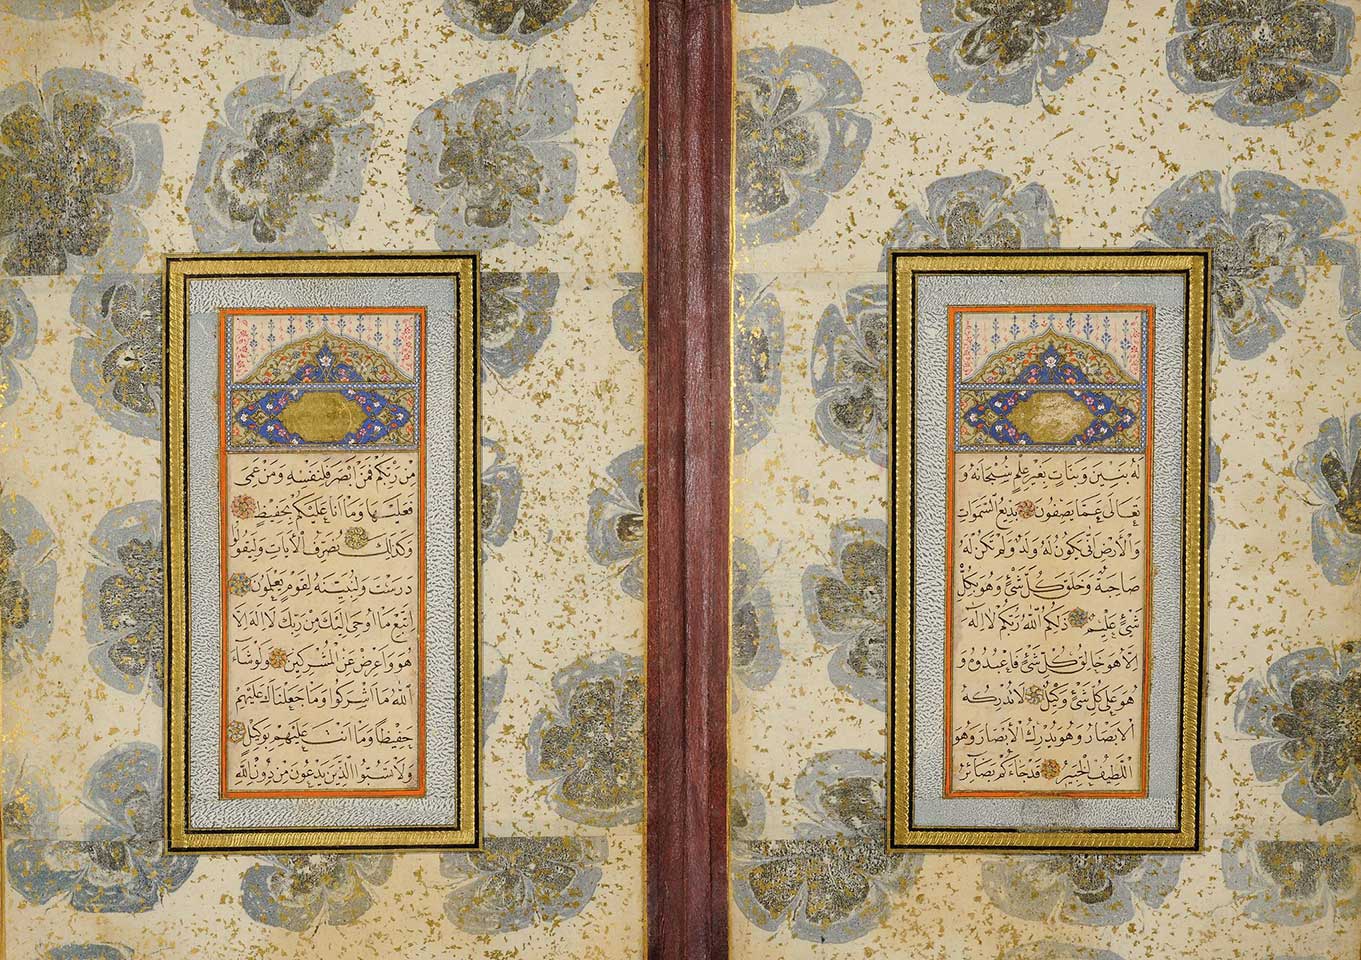 لَهُ بَنِينَ وَبَنَاتٍ بِغَيْرِ عِلْمٍ سُبْحَانَهُ وَ
تَعَالَى عَمَّا يَصِفُونَ بَدِيعُ السَّمٰوَاتِ
وَالْاَرْضِ اَنّٰى يَكُونُ لَهُ وَلَدٌ وَلَمْ تَكُنْ لَهُ
صَاحِبَةٌ وَخَلَقَ كُلَّ شَىْءٍ وَهُوَ بِكُلِّ
شَىْءٍ عَلِيمٌ ذٰلِكُمُ اللّٰهُ رَبُّكُمْ لَا اِلٰهَ
اِلَّا هُوَ خَالِقُ كُلِّ شَىْءٍ فَاعْبُدُوهُ وَ
هُوَ عَلٰى كُلِّ شَىْءٍ وَكِيلٌ لَا تُدْرِكُهُ
الْاَبْصَارُ وَهُوَ يُدْرِكُ الْاَبْصَارَ وَهُوَ
اللَّطِيفُ الْخَبِيرُ قَدْ جَاءَكُمْ بَصَائِرُ
مِنْ رَبِّكُمْ فَمَنْ اَبْصَرَ فَلِنَفْسِهِ وَمَنْ عَمِىَ
فَعَلَيْهَا وَمَا اَنَا عَلَيْكُمْ بِحَفِيظٍ
وَكَذٰلِكَ نُصَرِّفُ الْاٰيَاتِ وَلِيَقُولُوا
دَرَسْتَ وَلِنُبَيِّنَهُ لِقَوْمٍ يَعْلَمُونَ
اِتَّبِعْ مَا اُوحِىَ اِلَيْكَ مِنْ رَبِّكَ لَا اِلٰهَ اِلَّا
هُوَ وَاَعْرِضْ عَنِ الْمُشْرِكِينَ وَلَوْ شَاءَ
اللّٰهُ مَا اَشْرَكُوا وَمَا جَعَلْنَاكَ عَلَيْهِمْ
حَفِيظًا وَمَا اَنْتَ عَلَيْهِمْ بِوَكِيلٍ
وَلَا تَسُبُّوا الَّذِينَ يَدْعُونَ مِنْ دُونِ اللّٰهِ